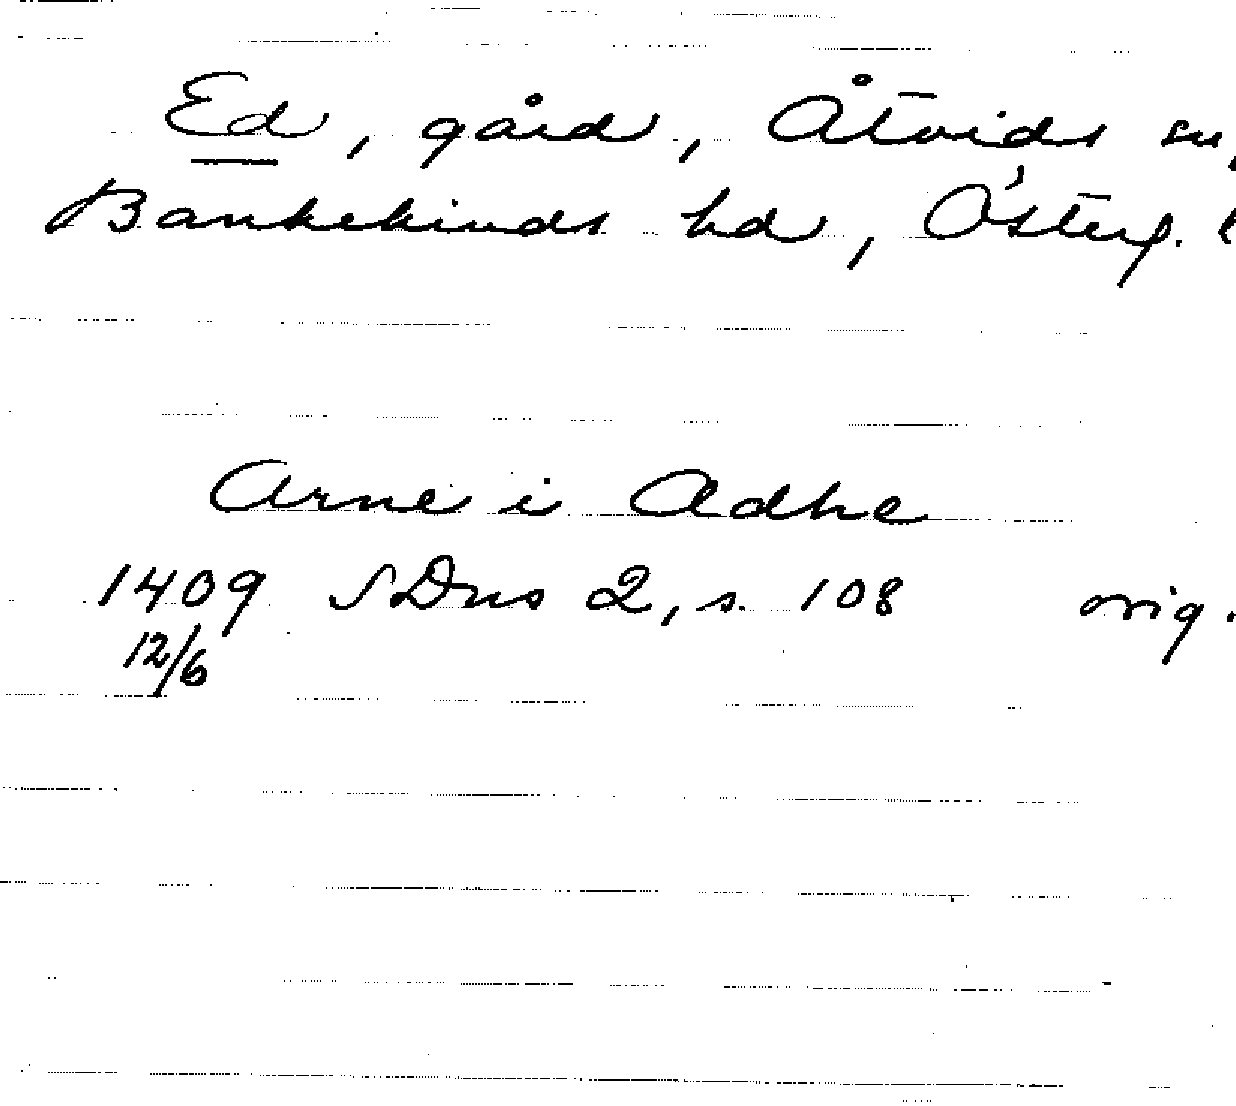 Ed, gård, Åtvids sn,
Bankekinds hd, Österg.
Arne i Adhe
1409 SDns 2, s. 108 orig.
12/6